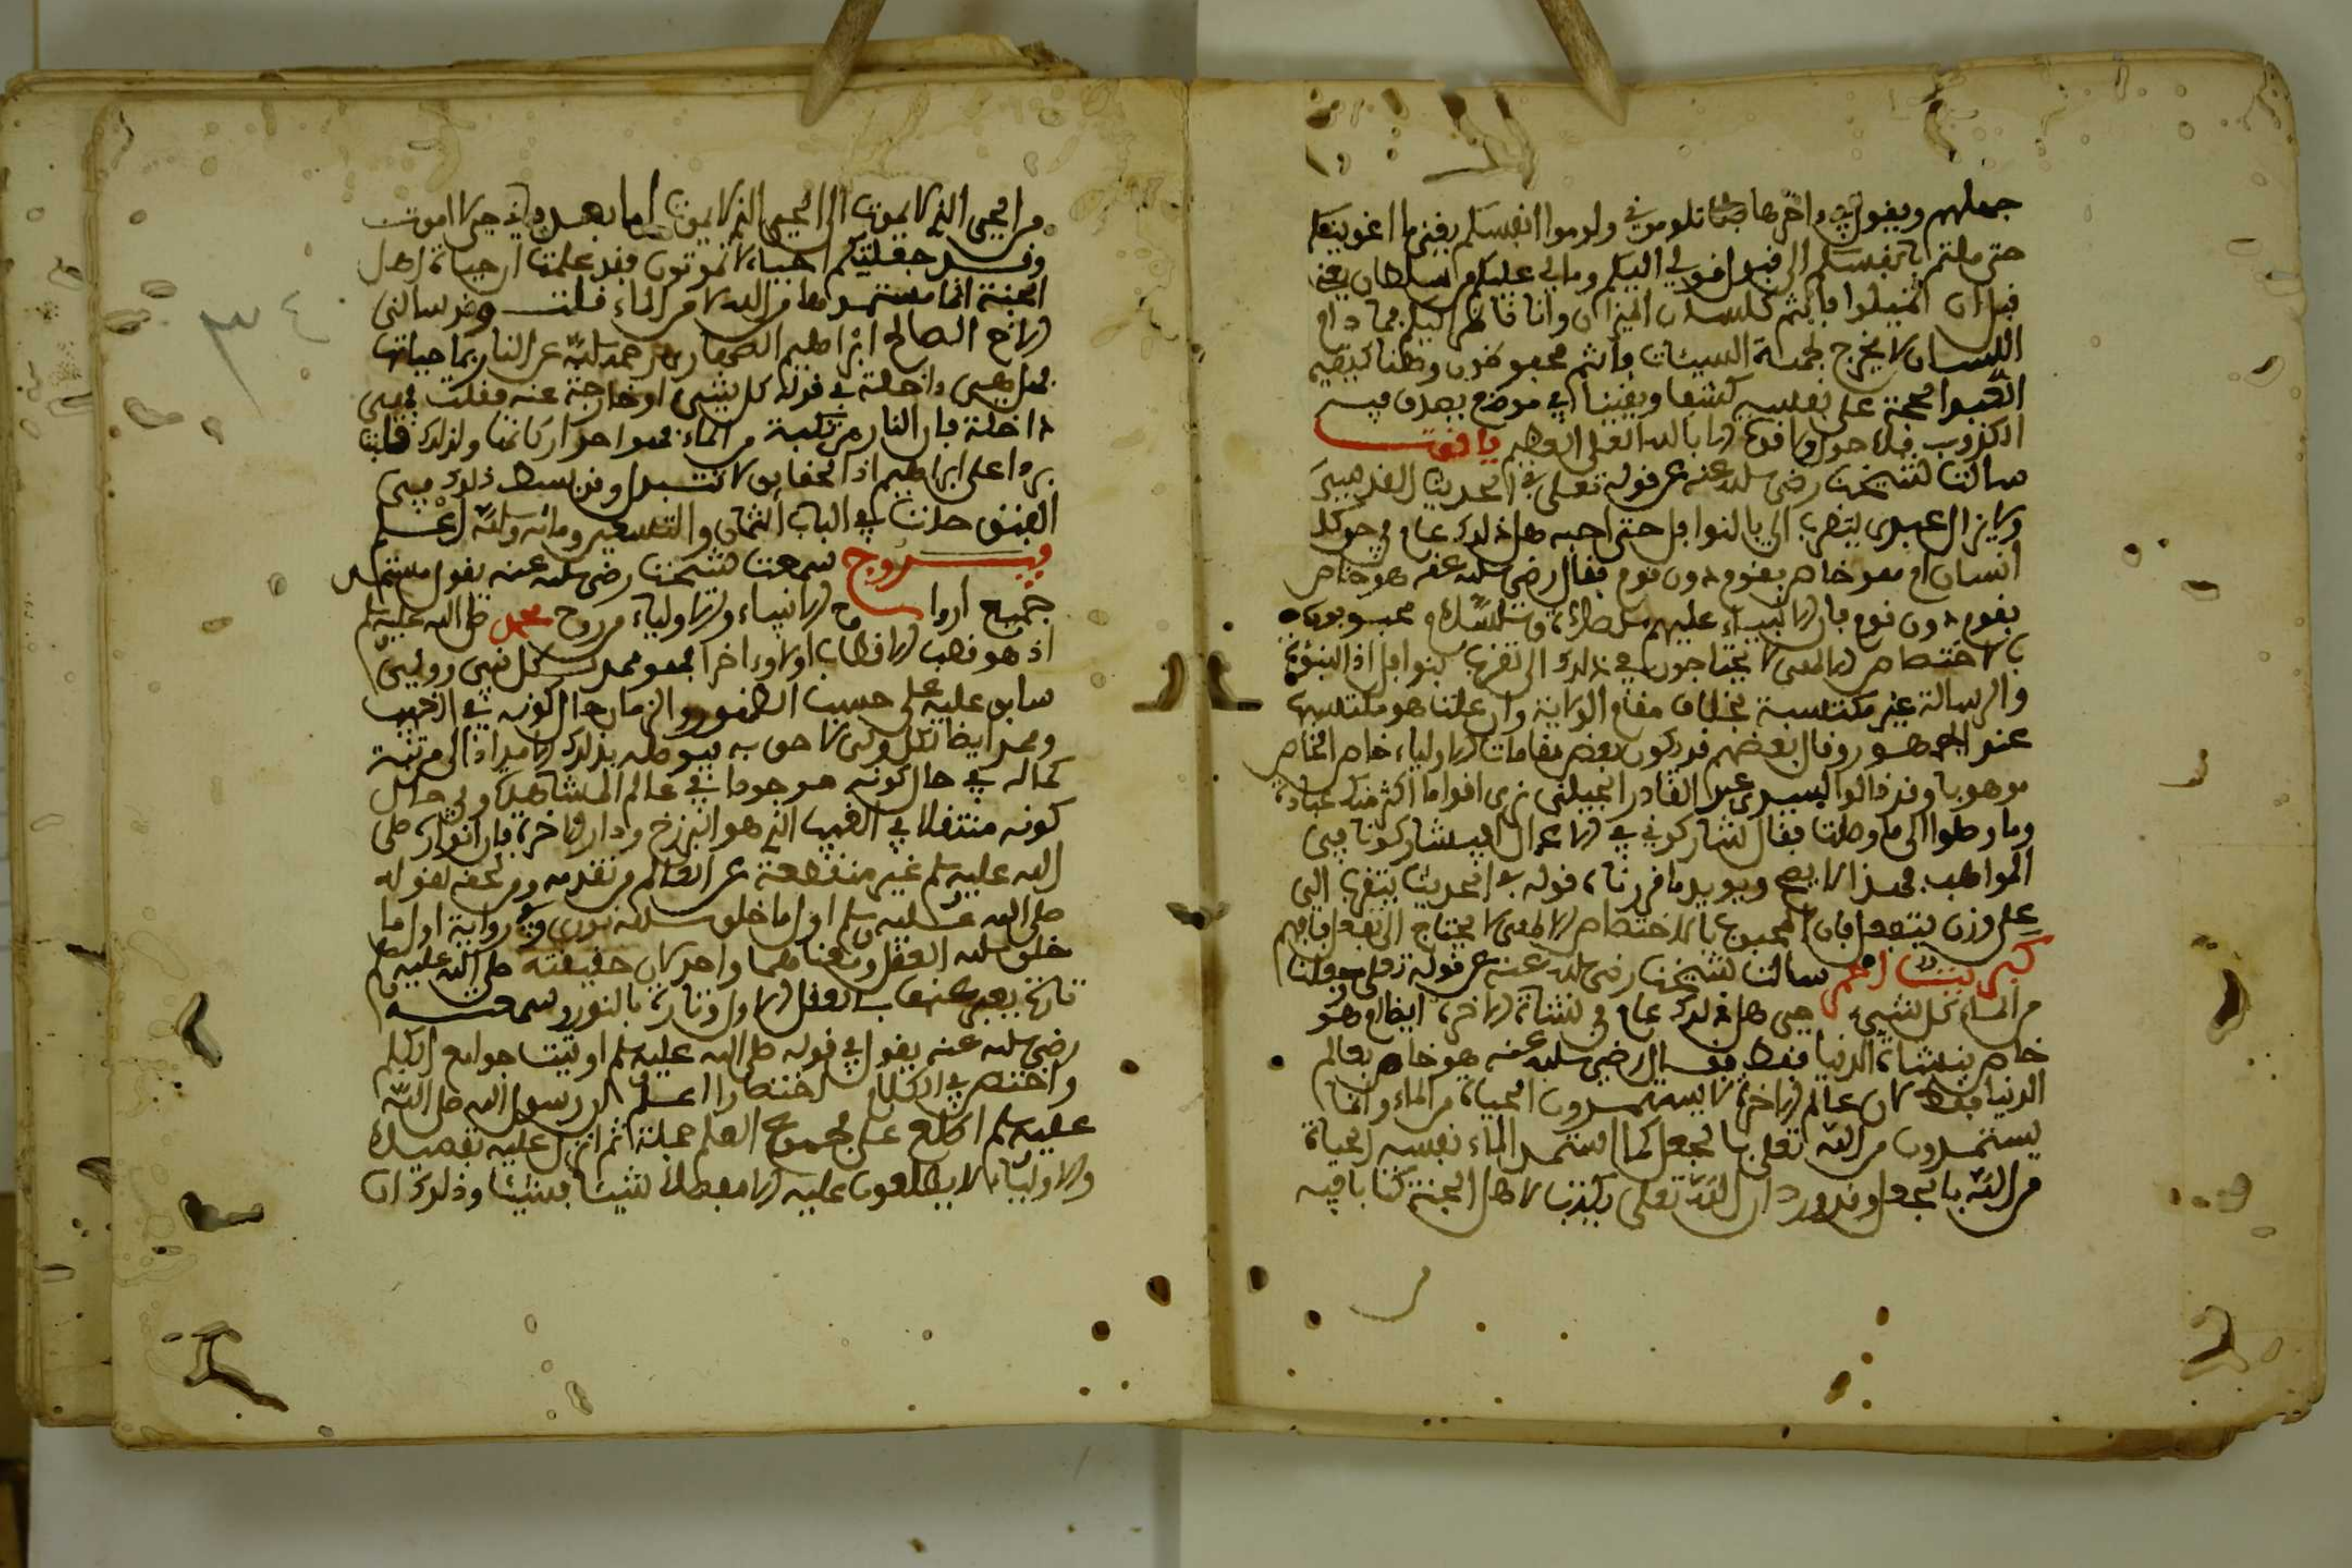 جهلهم ويقول في اخرها فلا تلوموني ولوموا انفسكم يعني ما اغويتكم
حتى ملتم بانفسكم الى قبل اغوي اليكم وما لي عليكم من سلطان يعني
قبل ان تميلوا فانتم كلسان الميزان وانا قائم اليكم فما دام
اللسان لا يخرج لجهة السيئات فانتم محفوظون وظنا كيفيه
اقيموا محجة على نفسه كشفا ويقينا في موضع يصدق فيه
الكذوب فلا حول ولا قوة الا بالله العلي العظيم ياقوت
سالت شيخنا رضي الله عنه عن قوله تعلى في الحديث القدسي
ولا يزال عبدي يتقرب الي بالنوافل حتى احبه هل ذلك عام في حق كل
انسان ام هو خاص بقوم دون قوم فقال رضي الله عنه هو خاص
بقوم دون قوم فان الانبياء عليهم الصلاة والسلام محبوبون
بالاختصاص الالهي لا يحتاجون في ذلك الى تقرب بنوافل اذ النبوة
والرسالة غير مكتسبة بخلاف مقام الولاية وان علت هو مكتسبها
عند الجمهور وقال بعضهم قد تكون بعض مقامات الاولياء خاص الخاص
موهوبا وقد قالوا لسيدي عبد القادر الجيلي نرى اقواما اكثر منك عبادة
وما وصلوا الى ما وصلت فقال شاركوني في الاعمال افيشاركونا في
المواهب فهذا لا يصح ويويد ما قررناه قوله في الحديث يتقرب الي
على وزن يتفعل فان المحبوب بالاختصاص الالهي لا يحتاج الى تفعل فافهم
كبريت احمر سالت شيخنا رضي الله عنه عن قوله تعلى وجعلنا
من الماء كل شيء حي هل ذلك عام في نشاة الاخرة ايضا ام هو
خاص بنشاة الدنيا فقط فقال رضي الله عنه هو خاص بعالم
الدنيا فقط لان عالم الاخرة لا يستمدون الحياة من الماء وانما
يستمدون من الله تعلى بالجعل كما استمد الماء نفسه الحياة
من الله بالجعل وقد ورد ان الله تعلى يكتب لاهل الجنة كتابا فيه
من الحي الذي لا يموت الى الحي الذي لا يموت اما بعد فاني حي لا اموت
وقد جعلتكم احياء لا تموتون فقد علمت ان حياة اهل
الجنة انما مستمدها من الله لا من الماء قلت وقد سالني
الاخ الصالح ابراهيم الصفار رحمه الله عن النار بما حياتها
فهل هي داخلة في قوله كل شيء او خارجة عنه فقلت هي
داخلة فان النار مركبة من الماء فهو احد اركانها ولذلك قلبت
بردا على ابراهيم اذ الحقايق لا تتبدل وقد بسط ذلك في
الفتوحات في الباب الثمان والتسعين ومائه والله اعلم
فيروزج سمعت شيخنا رضي الله عنه يقول مستمد
جميع ارواح الانبياء والاولياء من روح محمد صلى الله عليه وسلم
اذ هو قطب الاقطاب اولا واخرا فهو ممد كل نبي وولي
سابق عليه على حسب الظهور والزمان حال كونه في الغيب
وممد ايضا لكل ولي لاحق به فيوصله بذلك الامداد الى مرتبة
كماله في حال كونه موجودا في عالم المشاهدة وفي حال
كونه منتقلا في الغيب الذي هو البرزخ ودار الاخرة فان انواره صلى
الله عليه وسلم غير منقطعة عن العالم من تقدمه ومن لحقه لقوله
صلى الله عليه وسلم اول ما خلق الله نوري وفي رواية اول ما
خلق الله العقل ومعناهما واحد لان حقيقته صلى الله عليه وسلم
تارة يعبر عنها بالعقل الاول وتارة بالنور وسمعته
رضي الله عنه يقول في قوله صلى الله عليه وسلم اوتيت جوامع الكلم
واختصر لي الكلام اختصارا اعلم ان رسول الله صلى الله
عليه وسلم اطلع على مجموع العلم جملة ثم انزل عليه تفصيلا
والاولياء لا يطلعون عليه الا مفصلا شيئا فشيئا وذلك ان
٣٤